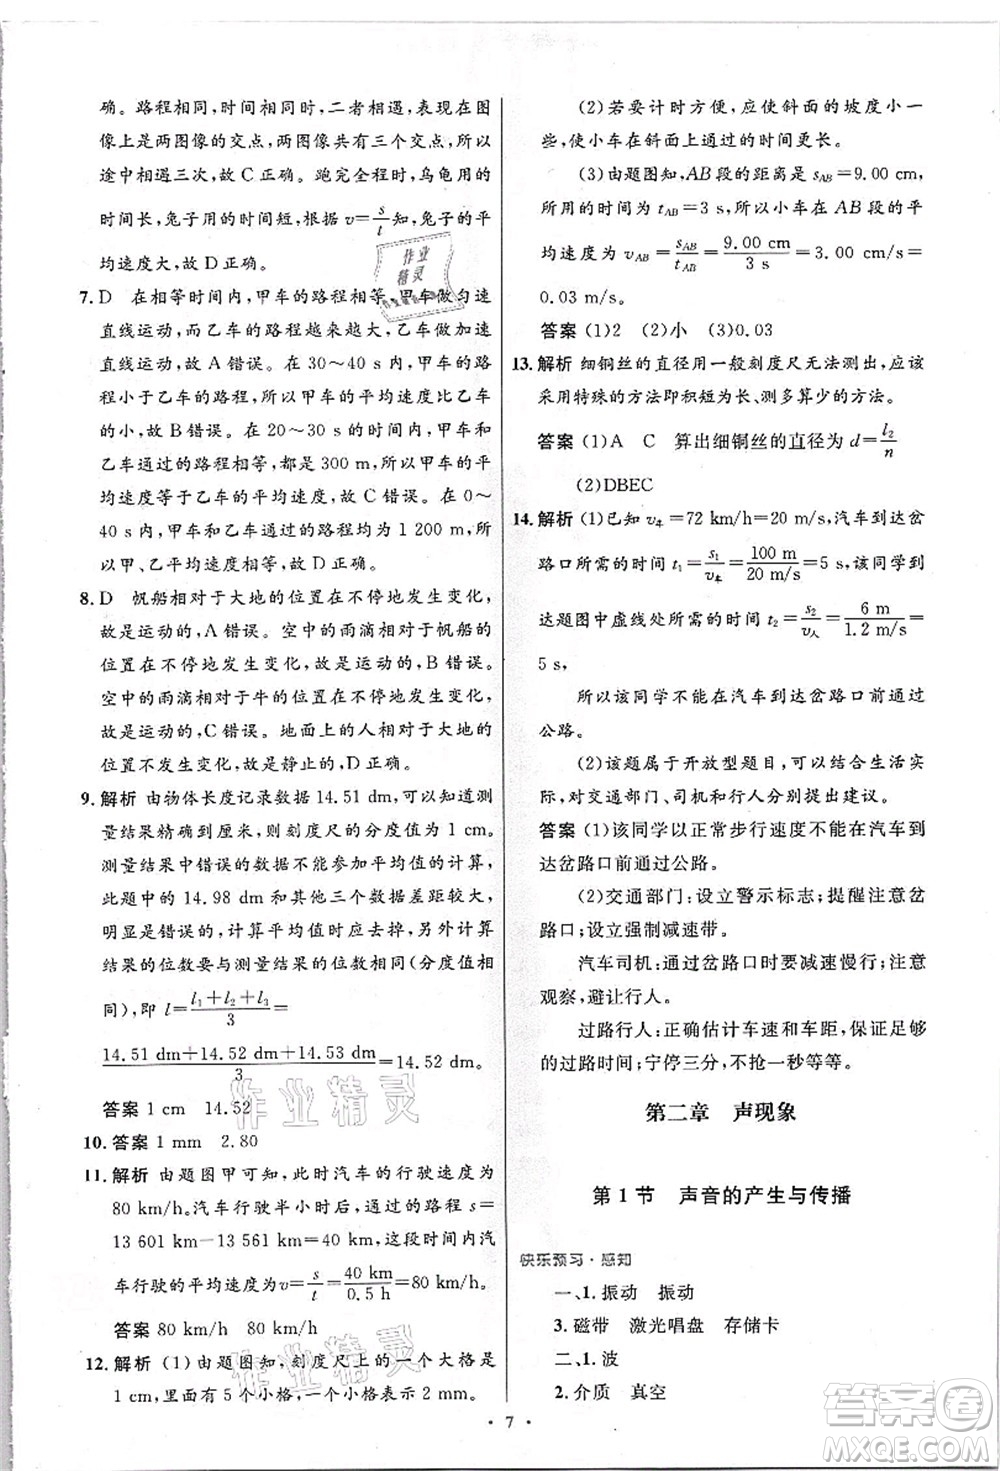 确。路程相同,时间相同,二者相遇,表现在图
像上是两图像的交点,两图像共有三个交点,所以
途中相遇三次,故 C 正确。跑完全程时,乌龟用的
时间长,兔子用的时间短,根据 v=s/t知,兔子的平
均速度大,故 D 正确。
7. D 在相等时间内,甲车的路程相等,甲车做匀速
直线运动,而乙车的路程越来越大,乙车做加速
运动,故 A 错误。在 30～40 s 内,甲车的路
程小于乙车的路程,所以甲车的平均速度比乙车
的小,故 B 错误。在 20～30 s 的时间内,甲、
乙车通过的路程相等,都是 300 m,所以甲车的平
均速度等于乙车的平均速度,故 C 错误。在 0～
40 s 内,甲车和乙车通过的路程均为 1 200 m,所
以甲、乙平均速度相等,故 D 正确。
8. D 帆船相对于大地的位置在不停地发生变化,
故是运动的,A 错误。空中的雨滴相对于帆船的
位置在不停地发生变化,故是运动的,B 错误。
空中的雨滴相对于牛的位置在不停地发生变化,
故是运动的,C 错误。地面上的人相对于大地的
位置不发生变化,故是静止的,D 正确。
9. 解析 由物体长度记录数据 14.51 dm,可以知道测
量结果精确到厘米,则刻度尺的分度值为 1 cm。
测量结果中错误的数据不能参加平均值的计算,
题中 14.98 dm 与其他几次的数据差距较大,
明显是错误的,计算平均值时应去掉,平均值
结果的位数要与测量结果的位数相同(分度值相
同),即 l=(l₁+l₂+l₃)/3=
(14.51 dm+14.52 dm+14.53 dm)/3=14.52 dm。
答案 1 cm 14.52
10. 答案 1 mm 2.80
11. 解析 由题图甲可知,此时汽车的行驶速度为
80 km/h。汽车行驶半小时后,通过的路程 s=
13 601 km-13 561 km=40 km,则这段时间内汽
车行驶的平均速度为 v=s/t=40 km/0.5 h=80 km/h。
答案 80 km/h 80 km/h
12. 解析 (1)由题图知,刻度尺上的一个大格是
1 cm,里面有 5 个小格,一个小格代表 2 mm。
(2)若要计时方便,应使斜面的坡度小一
些,使小车在斜面上运动的时间更长。
(3)由题图知,AB 段的距离是 sAB=9.00 cm,
所用的时间为 tAB=3 s,所以小车在 AB 段的平
均速度为 vAB=sAB/tAB=9.00 cm/3 s=3.00 cm/s=
0.03 m/s。
答案 (1)2 (2)小 (3)0.03
13. 解析 细铜丝的直径用一般刻度尺无法测出,应该
采用特殊的方法即积短为长、测多算少的方法。
答案 (1)A C 算出细铜丝的直径为 d=l₂/n
(2)DBEC
14. 解析 (1)已知 v车=72 km/h=20 m/s,汽车到达岔
路口所需的时间 t₁=s₁/v车=100 m/20 m/s=5 s,该同学到
达题图中虚线处所需的时间 t₂=s₂/v人=6 m/1.2 m/s=
5 s,
所以该同学不能在汽车到达岔路口前通过
公路。
(2)该题属于开放型题目,可以结合生活实
际,对交通部门、司机和行人分别提出建议。
答案 (1)该同学以正常步行速度不能在汽车到
达岔路口前通过公路。
(2)交通部门:设立警示标志;提醒注意岔
路口;设立强制减速带。
汽车司机:通过岔路口时要减速慢行;注意
观察,避让行人。
过路行人:正确估计车速和车距,保证足够
的过路时间;宁停三分,不抢一秒等等。
第二章 声现象
第 1 节 声音的产生与传播
快乐预习·感知
一、1. 振动 振动
3. 磁带 激光唱盘 存储卡
二、1. 波
2. 介质 真空
· 7 ·
作业
精灵
作业精灵
作业精灵
答案圈
MXQE.COM